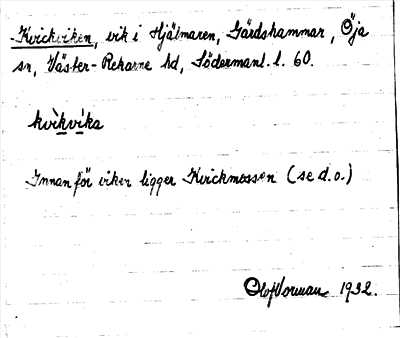 Kvickviken, vik i Hjälmaren, Gärdshammar, Öja
sn, Väster-Rekarne hd, Södermanl. l. 60.
kvìkvíka
Innanför viken ligger Kvickmossen (se d.o.)
Olof Norman 1932.